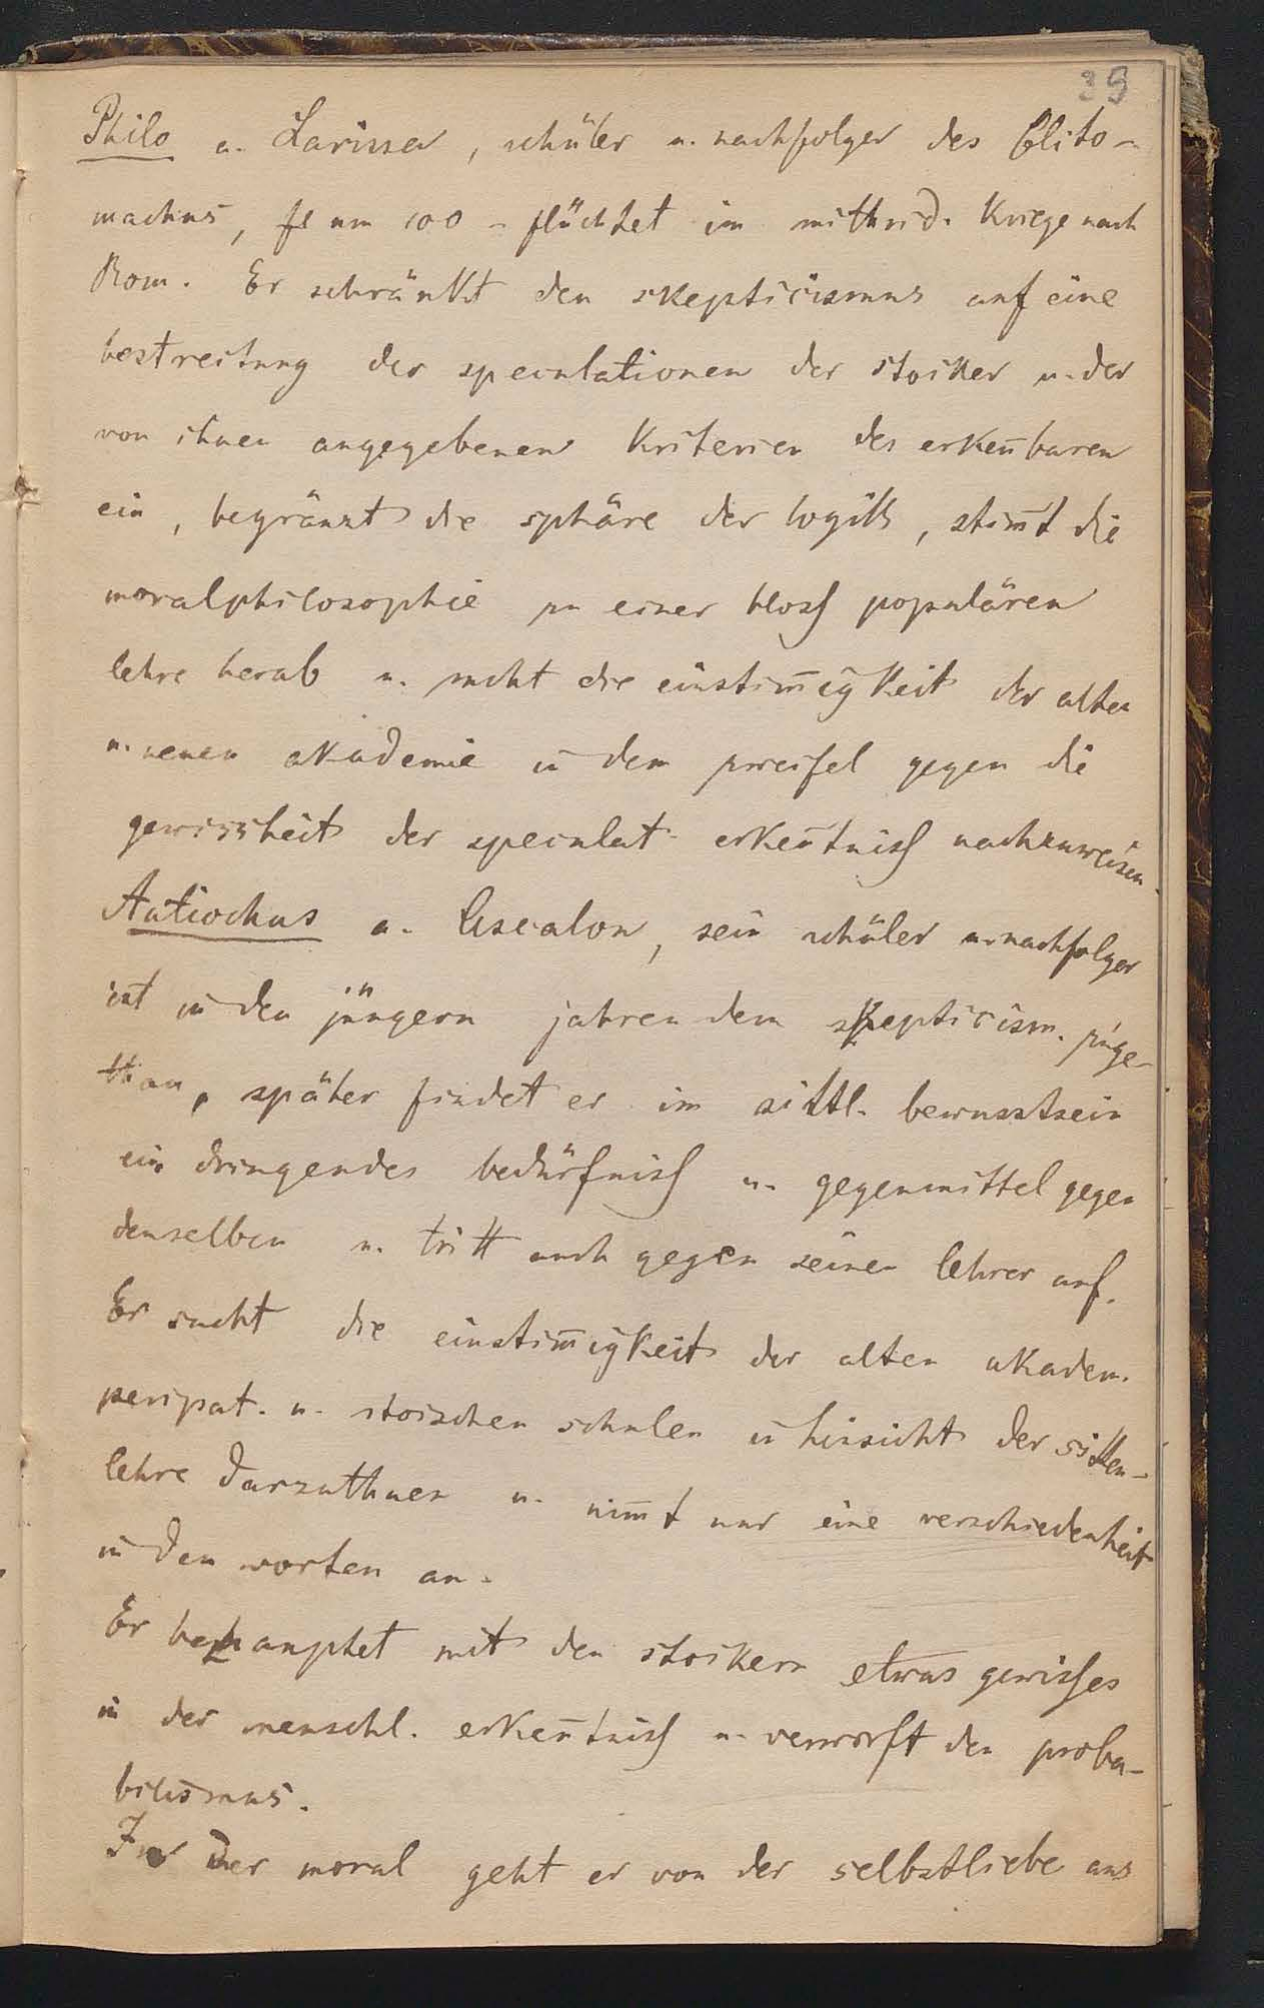 39
Philo a. Larissa, schüler u. nachfolger des Clito-
machus, fl um 100 - flüchtet im mithrid. Kriege nach
Rom. Er schränkt den skepticismus auf eine
bestreitung der speculationen der stoiker u. der
von ihnen angegebenen Kriterien des erken̄baren
ein, begränzt die sphäre der logik, stim̄t die
moralphilosophie zu einer bloss populären
lehre herab u. sucht die einstim̄igkeit der alten
u. neuen akademie in dem zweifel gegen die
gewissheit der speculat. erken̄tniss nachzuweisen.
Antiochus a. Ascalon, sein schüler u. nachfolger
ist in den jüngern jahren dem skepticism. zuge-
than, später findet er im sittl. bewusstsein
ein dringendes bedürfniss u. gegenmittel gegen
denselben u. tritt auch gegen seinen lehrer auf.
Er sucht die einstim̄igkeit der alten akadem.
peripat. u. stoischen schulen in hinsicht der sitten-
lehre darzuthuen u. nim̄t nur eine verschiedenheit
in den worten an.
Er behauptet mit den stoikern etwas gewisses
in der menschl. erken̄tniss u. verwirft den proba-
bilismus.
In der moral geht er von der selbstliebe aus